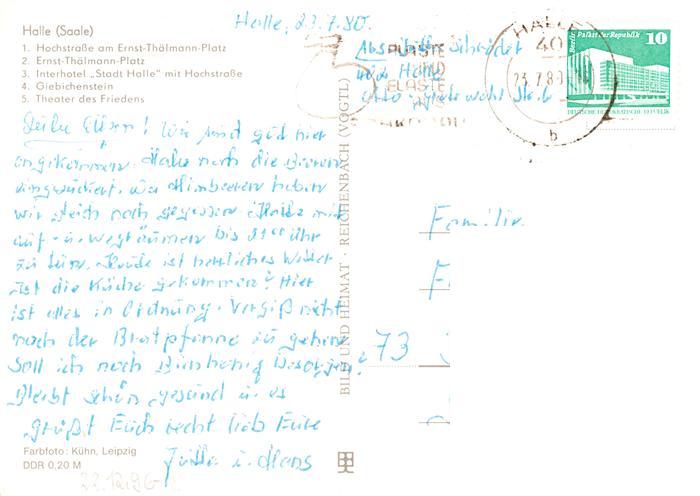 Halle, 23.7.80.
Halle (Saale)
1. Hochstraße am Ernst-Thälmann-Platz
2. Ernst-Thälmann-Platz
3. Interhotel „Stadt Halle" mit Hochstraße
4. Giebichenstein
5. Theater des Friedens
Liebe Eltern! Wir sind gut hier
angekommen. Habe noch die Beeren
eingezuckert. Die Himbeeren haben
wir gleich noch gegessen. Hatte mit
auf- u. wegräumen bis Uhr
zu tun. Heute ist herrliches Wetter
Ist die Küche gekommen? Hier
ist alles in Ordnung. Vergiß nicht
nach der Bratpfanne zu gehen
Soll ich noch besorgen?
Bleibt schön gesund u. es
grüßt Euch recht lieb Eure
Jutta u. Hans
Farbfoto: Kühn, Leipzig
DDR 0,20 M
22.12.96
BILD UND HEIMAT · REICHENBACH (VOGTL)
PLASTE
UND
ELASTE
Abs. Schröder
Halle
Otto
HALLE
40
23.7.80
b
Berlin, Palast der Republik
10
DEUTSCHE DEMOKRATISCHE REPUBLIK
Familie
F
73